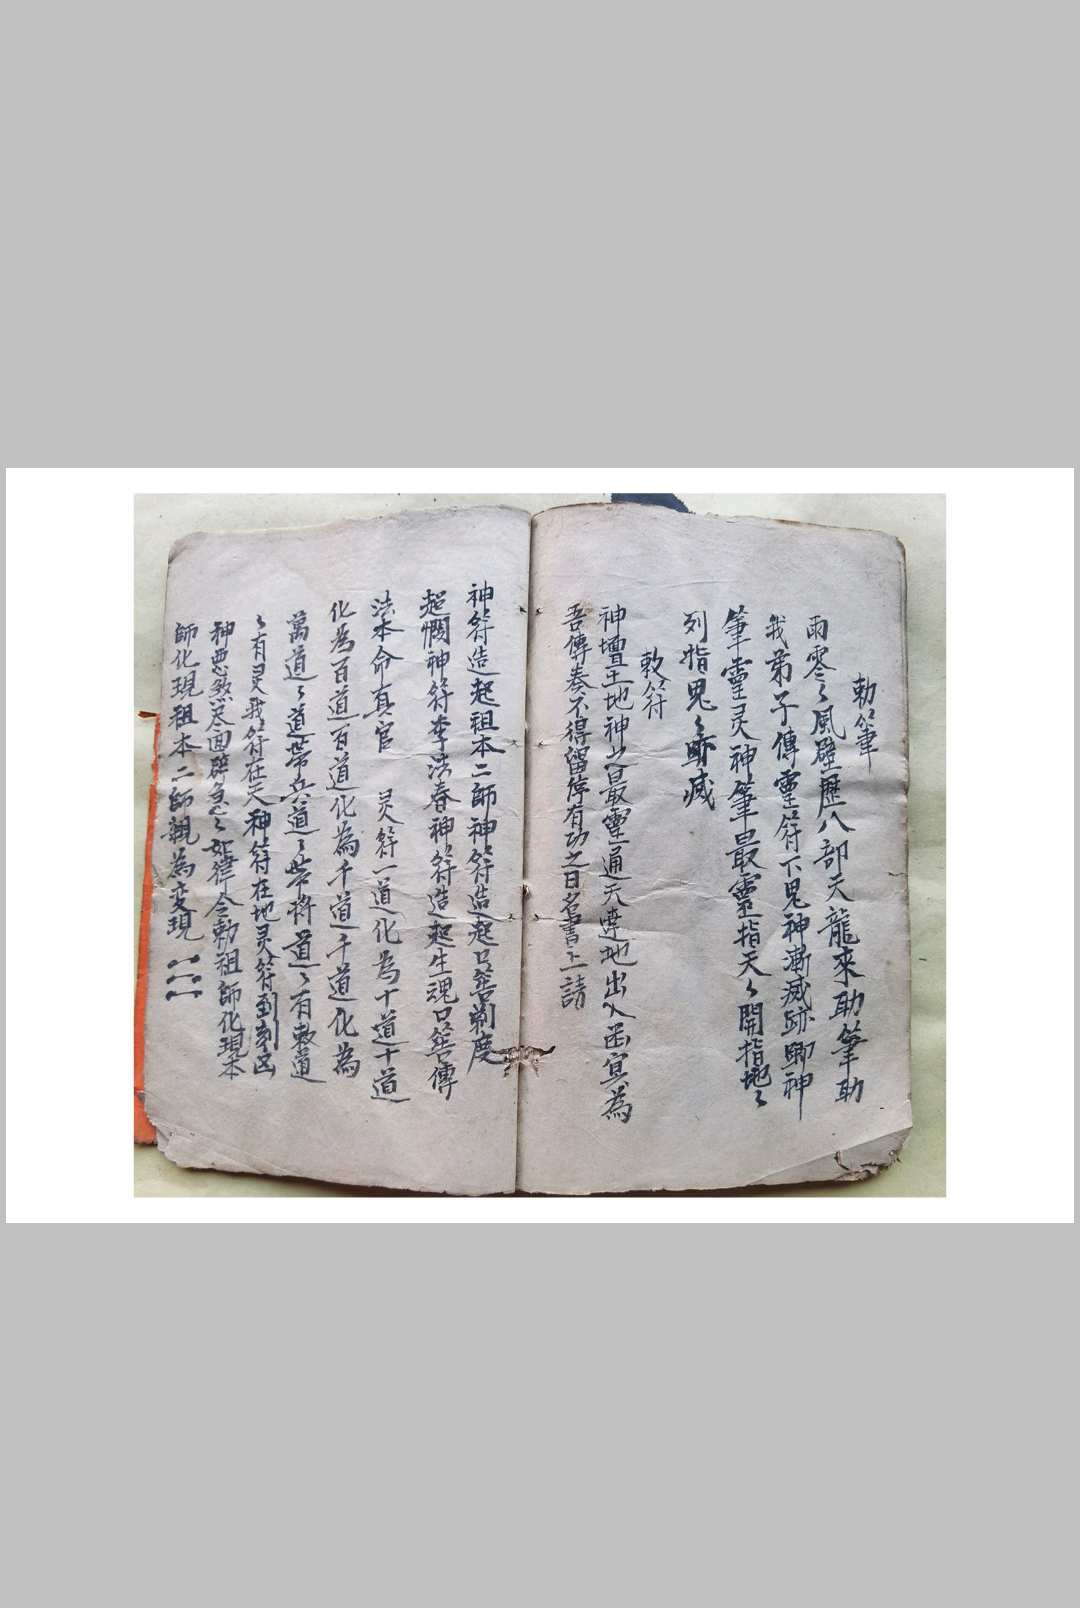 勅筆
雨零〻風霹歷八部天龍來助筆助
我弟子傳靈符下鬼神漸滅跡鄉神
筆靈灵神筆最靈指天〻開指地〻
列指鬼〻跡滅
敕符
神壇土地神之最靈通天達地出入幽冥為
吾傳奏不得留停有功之日名書上請
神符造起祖本二師神符造起口答剃度
超憫神符李法春神符造起生魂口答傳
法本命真官 灵符一道化為十道十道
化為百道百道化為千道千道化為
萬道〻道帶兵道〻帶將道〻有敕道
〻有灵我符在天神符在地灵符到刻凶
神惡煞尽面辟急〻如律令勅祖師化現本
師化現祖本二師親為变現